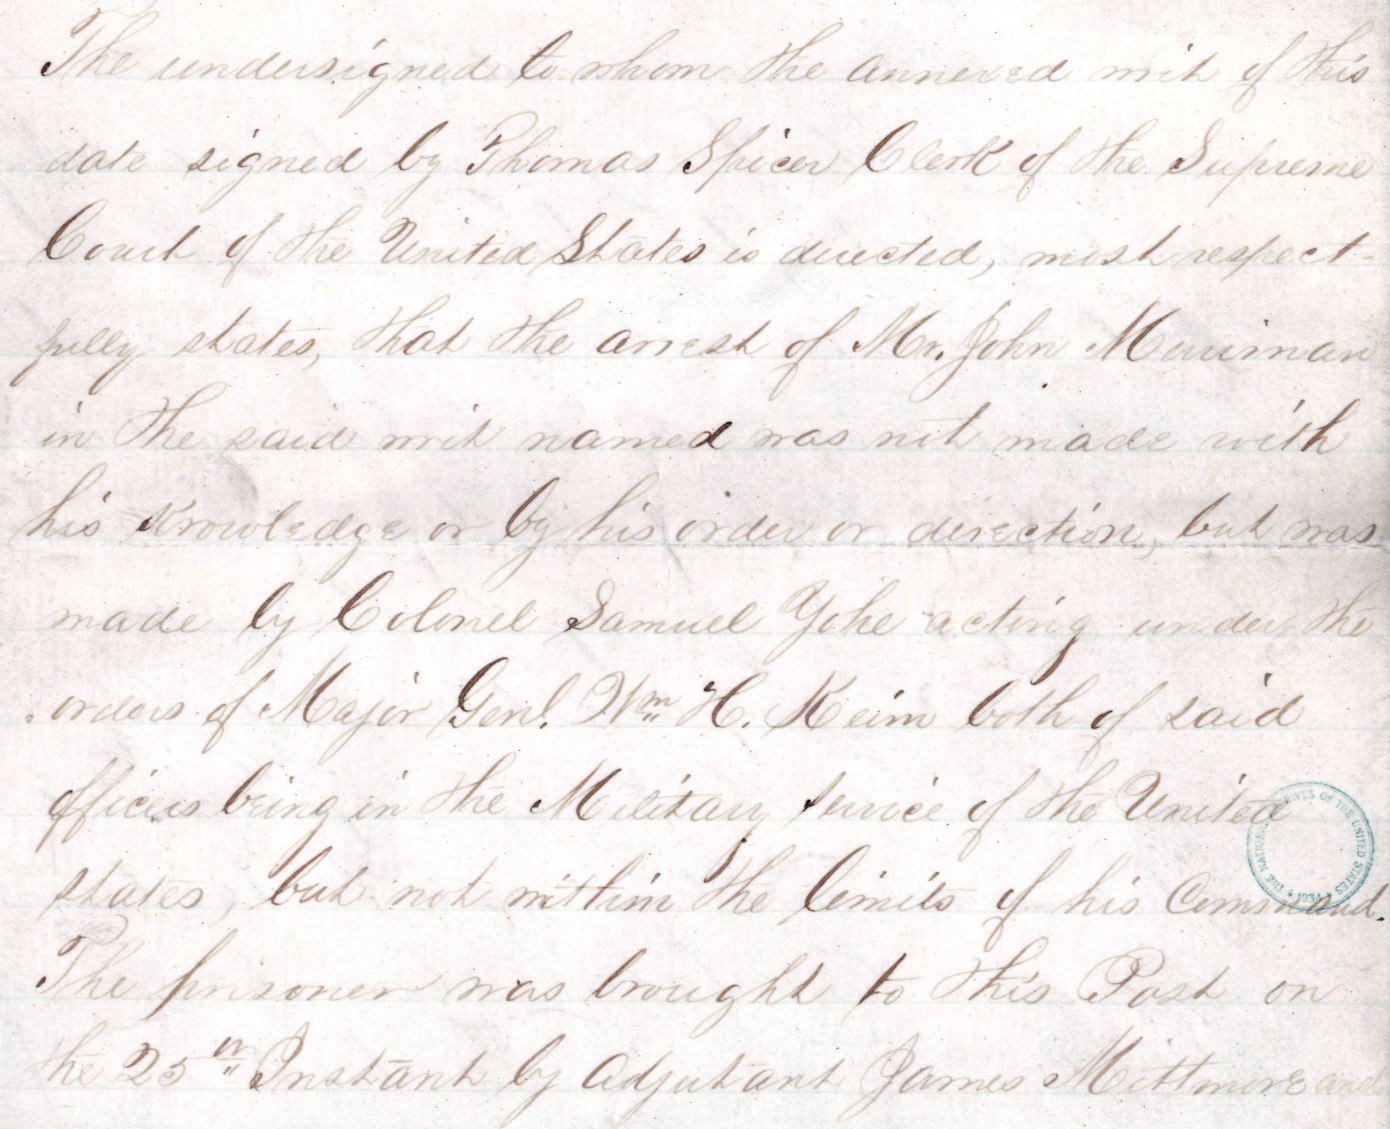 The undersigned to whom the annexed writ of this
date signed by Thomas Spicer Clerk of the Supreme
Court of the United States is directed, most respect-
fully states, that the arrest of Mr. John Merriman
in the said writ named was not made with
his knowledge or by his order or direction, but was
made by Colonel Samuel Yohe acting under the
orders of Major Genl. Wm H. Keim both of said
officers being in the Military service of the United
States, but not within the limits of his Command.
The prisoner was brought to this Post on
the 25th Instant by Adjutant James Mittmore and
THE NATIONAL ARCHIVES OF THE UNITED STATES
1934